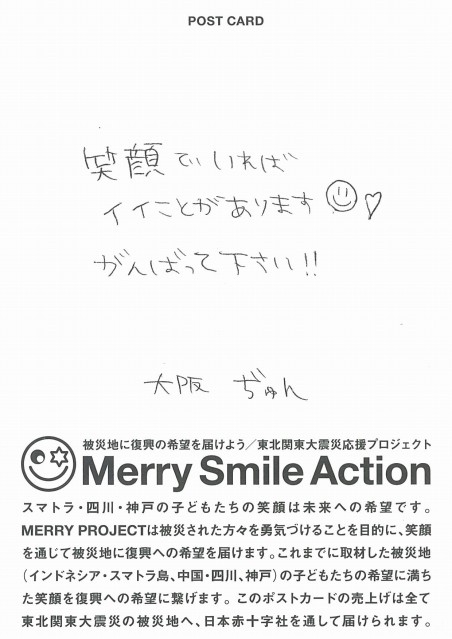 POST CARD
笑顔でいれば
イイことがあります
がんばって下さい!!
大阪 ぢゅん
被災地に復興の希望を届けよう／東北関東大震災応援プロジェクト
Merry Smile Action
スマトラ・四川・神戸の子どもたちの笑顔は未来への希望です。
MERRY PROJECTは被災された方々を勇気づけることを目的に、笑顔
を通じて被災地に復興への希望を届けます。これまでに取材した被災地
（インドネシア・スマトラ島、中国・四川、神戸）の子どもたちの希望に満ち
た笑顔を復興への希望に繋げます。このポストカードの売上げは全て
東北関東大震災の被災地へ、日本赤十字社を通して届けられます。